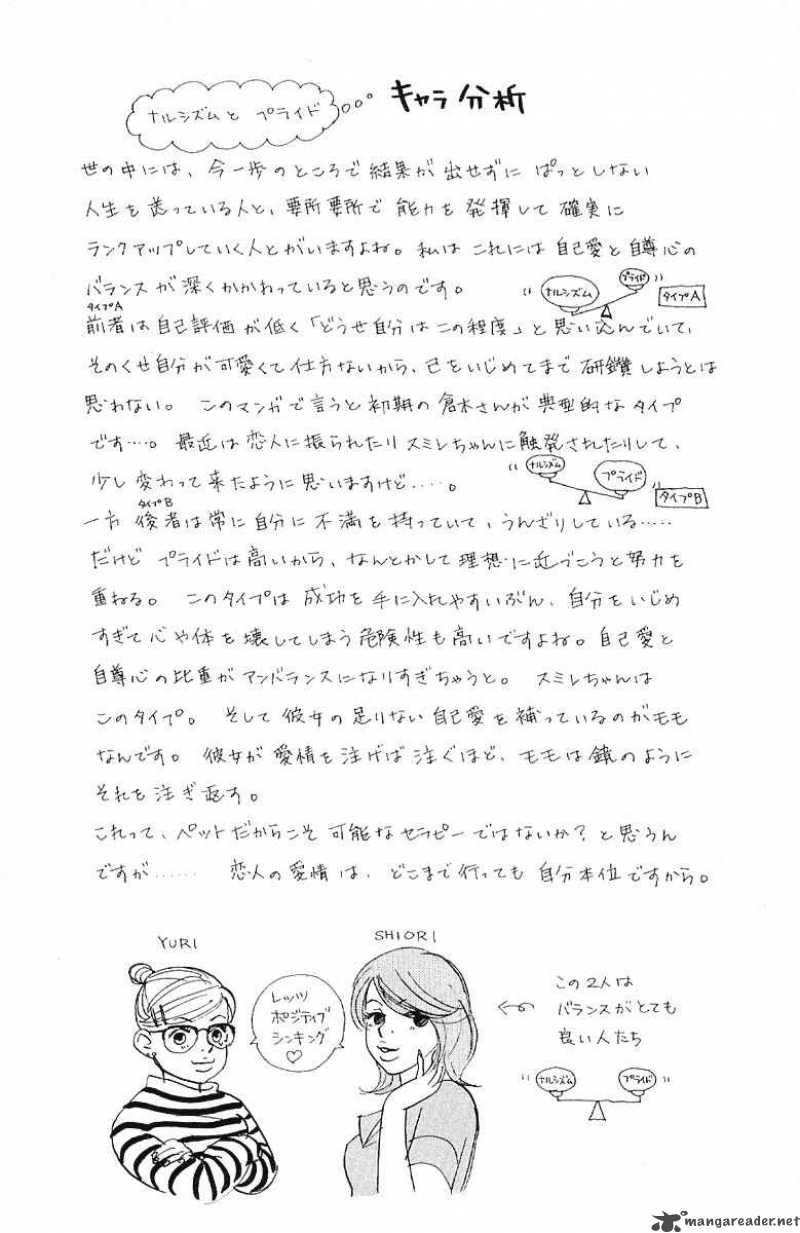 ナルシズムと プライド
キャラ分析
世の中には、今一歩のところで結果が出せずに ぱっとしない
人生を送っている人と、要所要所で能力を発揮して確実に
ランクアップしていく人とがいますよね。私はこれには自己愛と自尊心の
バランスが深くかかわっていると思うのです。
ナルシズム
プライド
タイプA
タイプA
前者は自己評価が低く「どうせ自分はこの程度」と思い込んでいて、
そのくせ自分が可愛くて仕方ないから、己をいじめてまで研鑽しようとは
思わない。このマンガで言うと初期の倉木さんが典型的なタイプ
です…。最近は恋人に振られたりスミレちゃんに触発されたりして、
少し変わって来たように思いますけど……。
ナルシズム
プライド
タイプB
タイプB
一方後者は常に自分に不満を持っていて、うんざりしている……
だけどプライドは高いから、なんとかして理想に近づこうと努力を
重ねる。このタイプは成功を手に入れやすいぶん、自分をいじめ
すぎて心や体を壊してしまう危険性も高いですよね。自己愛と
自尊心の比重がアンバランスになりすぎちゃうと。スミレちゃんは
このタイプ。そして彼女の足りない自己愛を補っているのがモモ
なんです。彼女が愛情を注げば注ぐほど、モモは鏡のように
それを注ぎ返す。
これって、ペットだからこそ可能なセラピーではないか?と思うん
ですが…… 恋人の愛情は、どこまで行っても自分本位ですから。
YURI
SHIORI
レッツ
ポジティブ
シンキング
♡
この2人は
バランスがとても
良い人たち
ナルシズム
プライド
mangareader.net